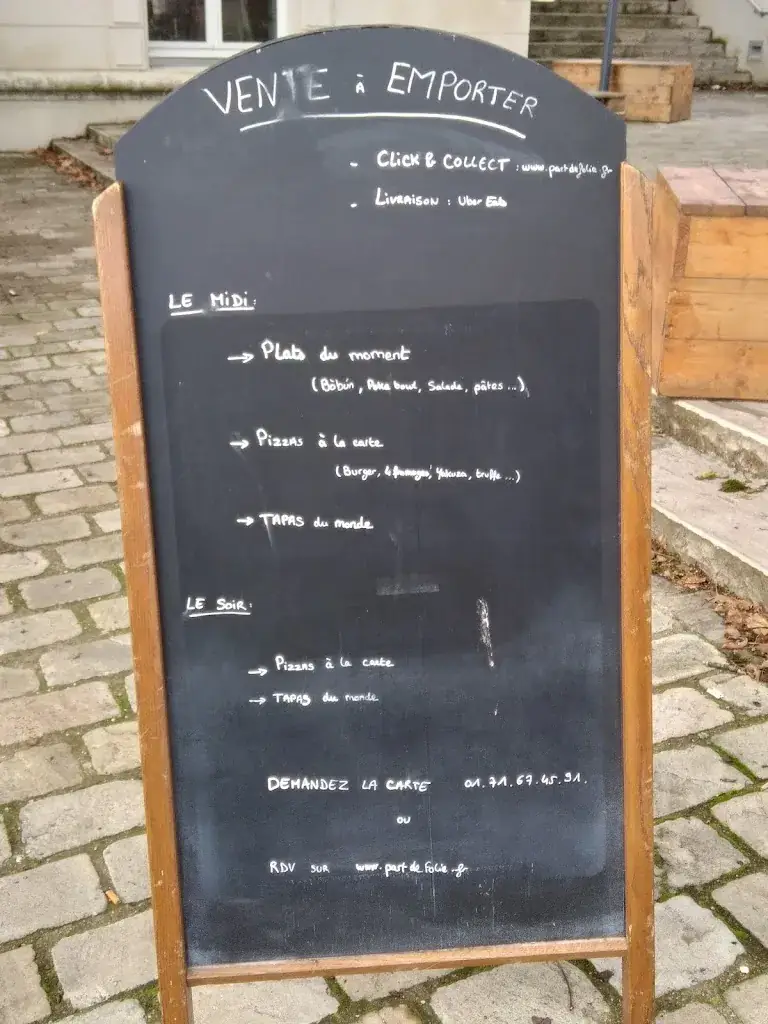 VENTE à EMPORTER
- CLICK & COLLECT : www.partdefolie.fr
- LIVRAISON : Uber Eats
LE MIDI:
→ Plats du moment
(Bòbún, Poke bowl, Salade, pâtes...)
→ PIZZAS à la carte
(Burger, 4 fromages, Yakuza, truffe...)
→ TAPAS du monde
LE SOIR:
→ PIZZAS à la carte
→ TAPAS du monde
DEMANDEZ LA CARTE 01.71.67.45.91.
ou
RDV SUR www.partdefolie.fr